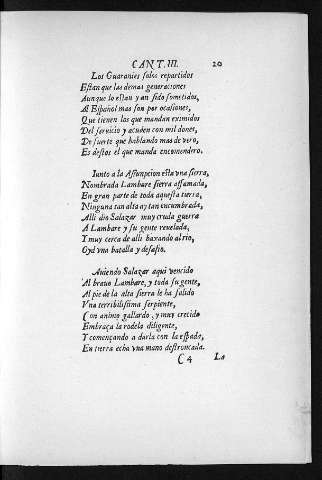 CANT. III. 20
Los Guaranies solos repartidos
Estan que las demas generaciones
Aunque lo estan y an sido sometidos,
Al Español mas son por ocasiones,
Que tienen los que mandan eximidos
Del servicio y acuden con mil dones,
De suerte que hablando mas de vero,
Es destos el que manda encomendero.
Iunto a la Assumpcion esta vna sierra,
Nombrada Lambare sierra affamada,
En gran parte de toda aquesta tierra,
Ninguna tan alta ay tan encumbrada,
Alli dio Salazar muy cruda guerra
A Lambare y su gente reuelada,
Y muy cerca de alli baxando al rio,
Oyd vna batalla y desafio.
Auiendo Salazar aqui vencido
Al brauo Lambare, y toda su gente,
Al pie de la alta sierra le ha salido
Vna terribilissima serpiente,
Con animo gallardo, y muy crecido
Embraça la rodela diligente,
Y començando a darla con la espada,
En tierra echa vna mano destroncada.
C 4 La